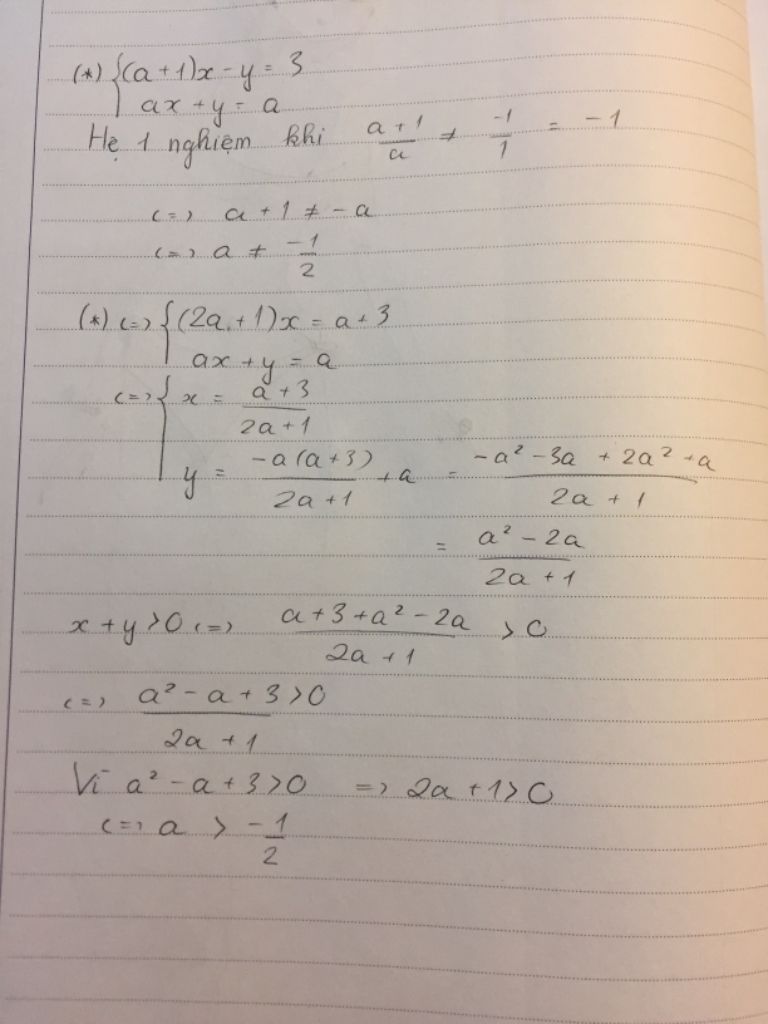 (*) { (a+1)x - y = 3
ax + y = a
Hệ 1 nghiệm khi (a+1)/a ≠ -1/1 = -1
<=> a + 1 ≠ -a
<=> a ≠ -1/2
(*) <=> { (2a+1)x = a+3
ax + y = a
<=> { x = (a+3)/(2a+1)
y = (-a(a+3))/(2a+1) + a = (-a² - 3a + 2a² + a)/(2a+1)
= (a² - 2a)/(2a+1)
x + y > 0 <=> (a+3+a²-2a)/(2a+1) > 0
<=> (a² - a + 3)/(2a+1) > 0
Vì a² - a + 3 > 0 => 2a + 1 > 0
<=> a > -1/2